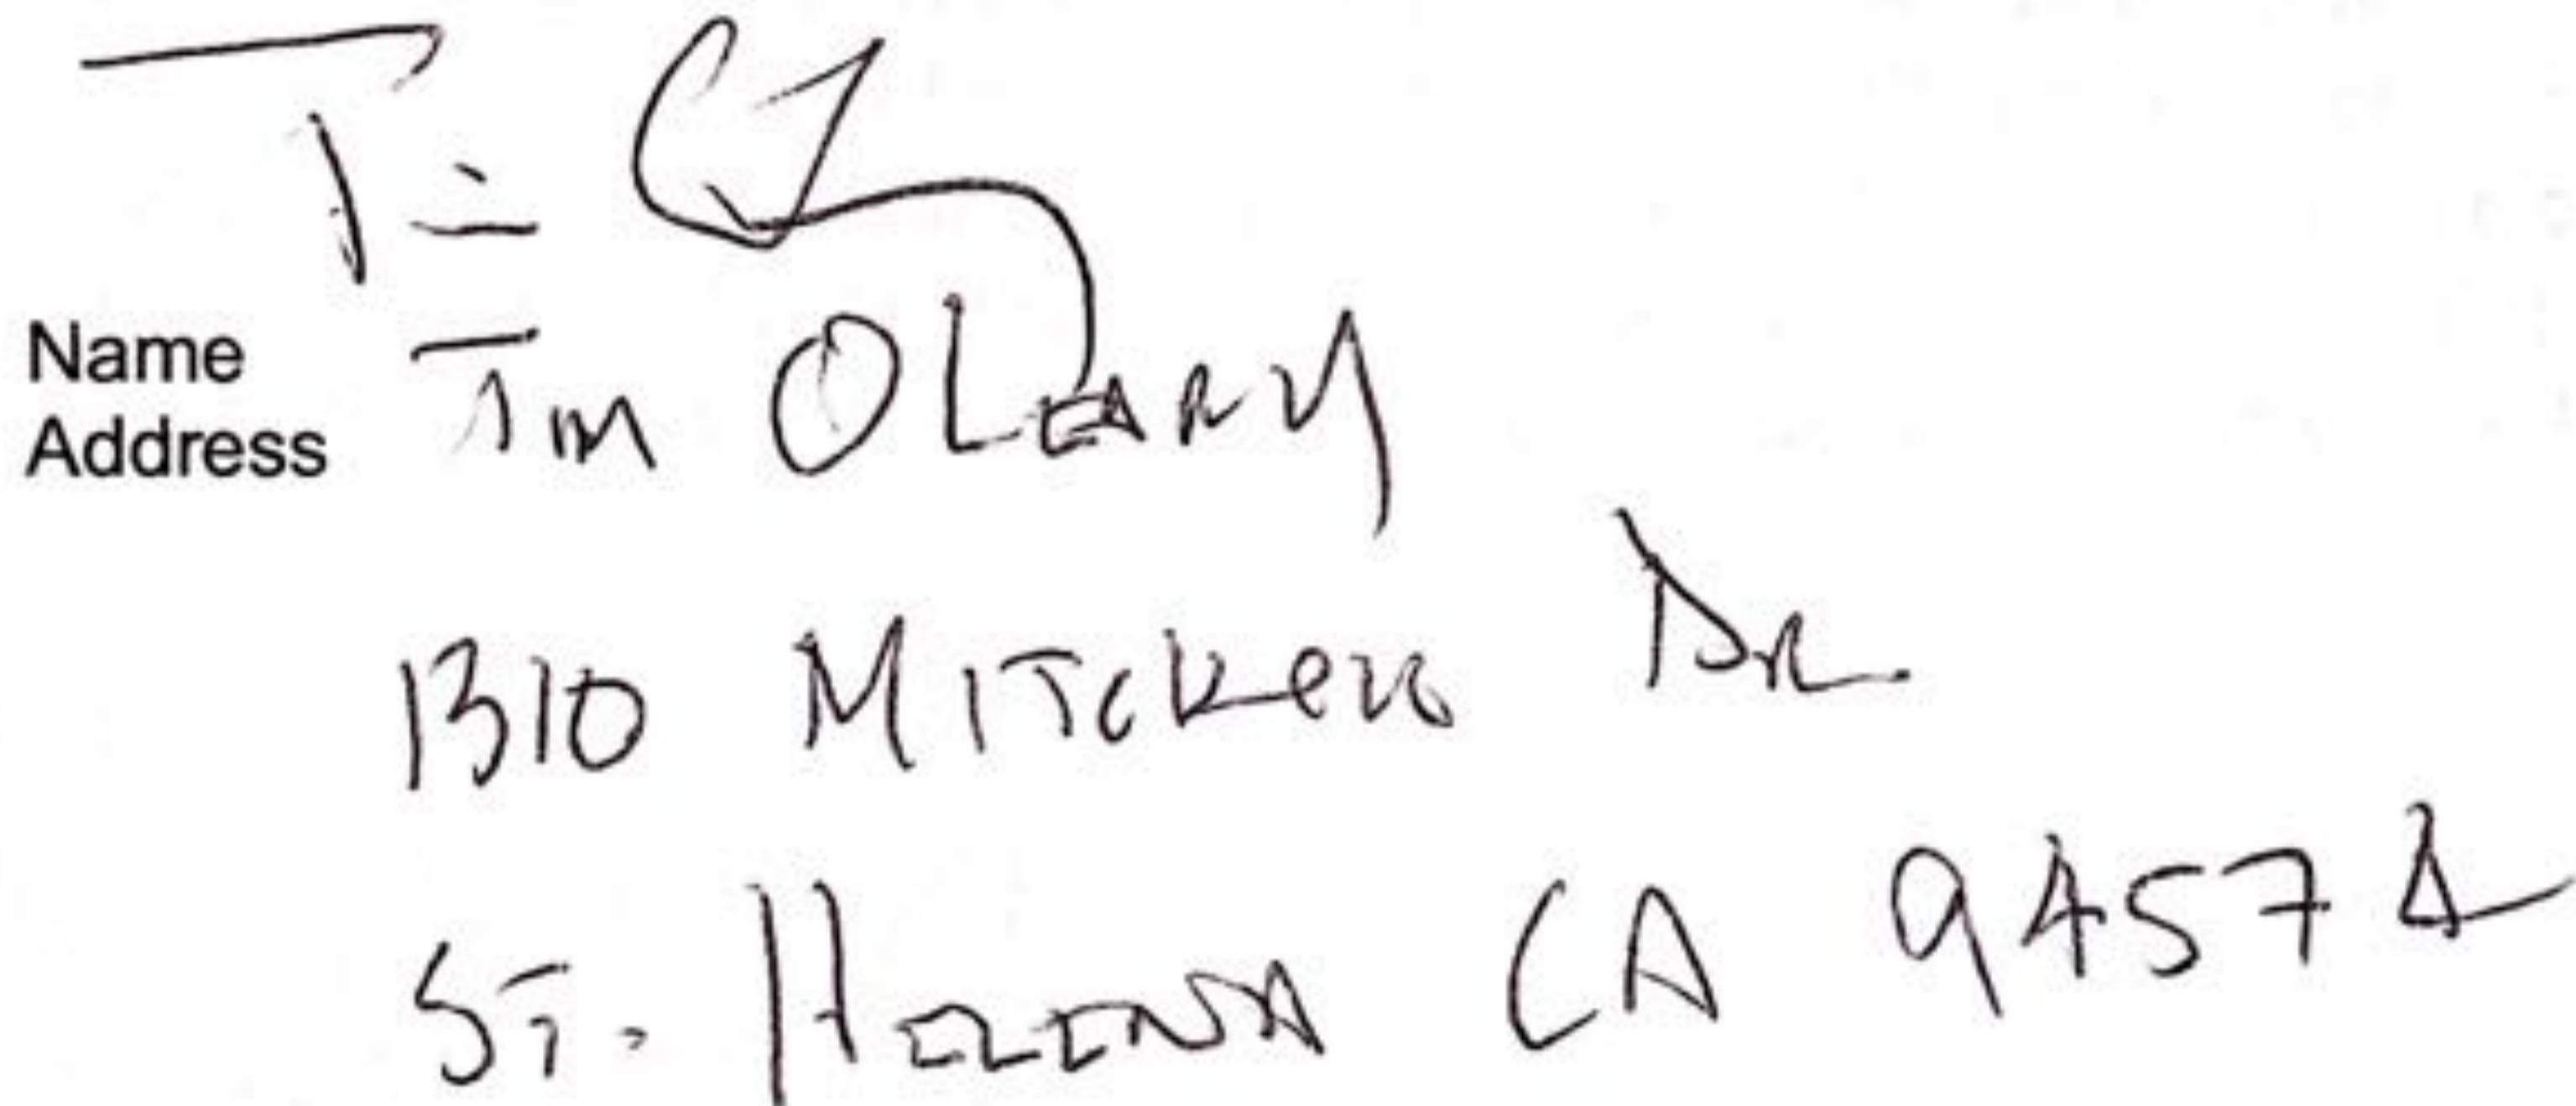 Name Tim OLEARY
Address
1310 MITCHELL DR
ST. HELENA CA 94574